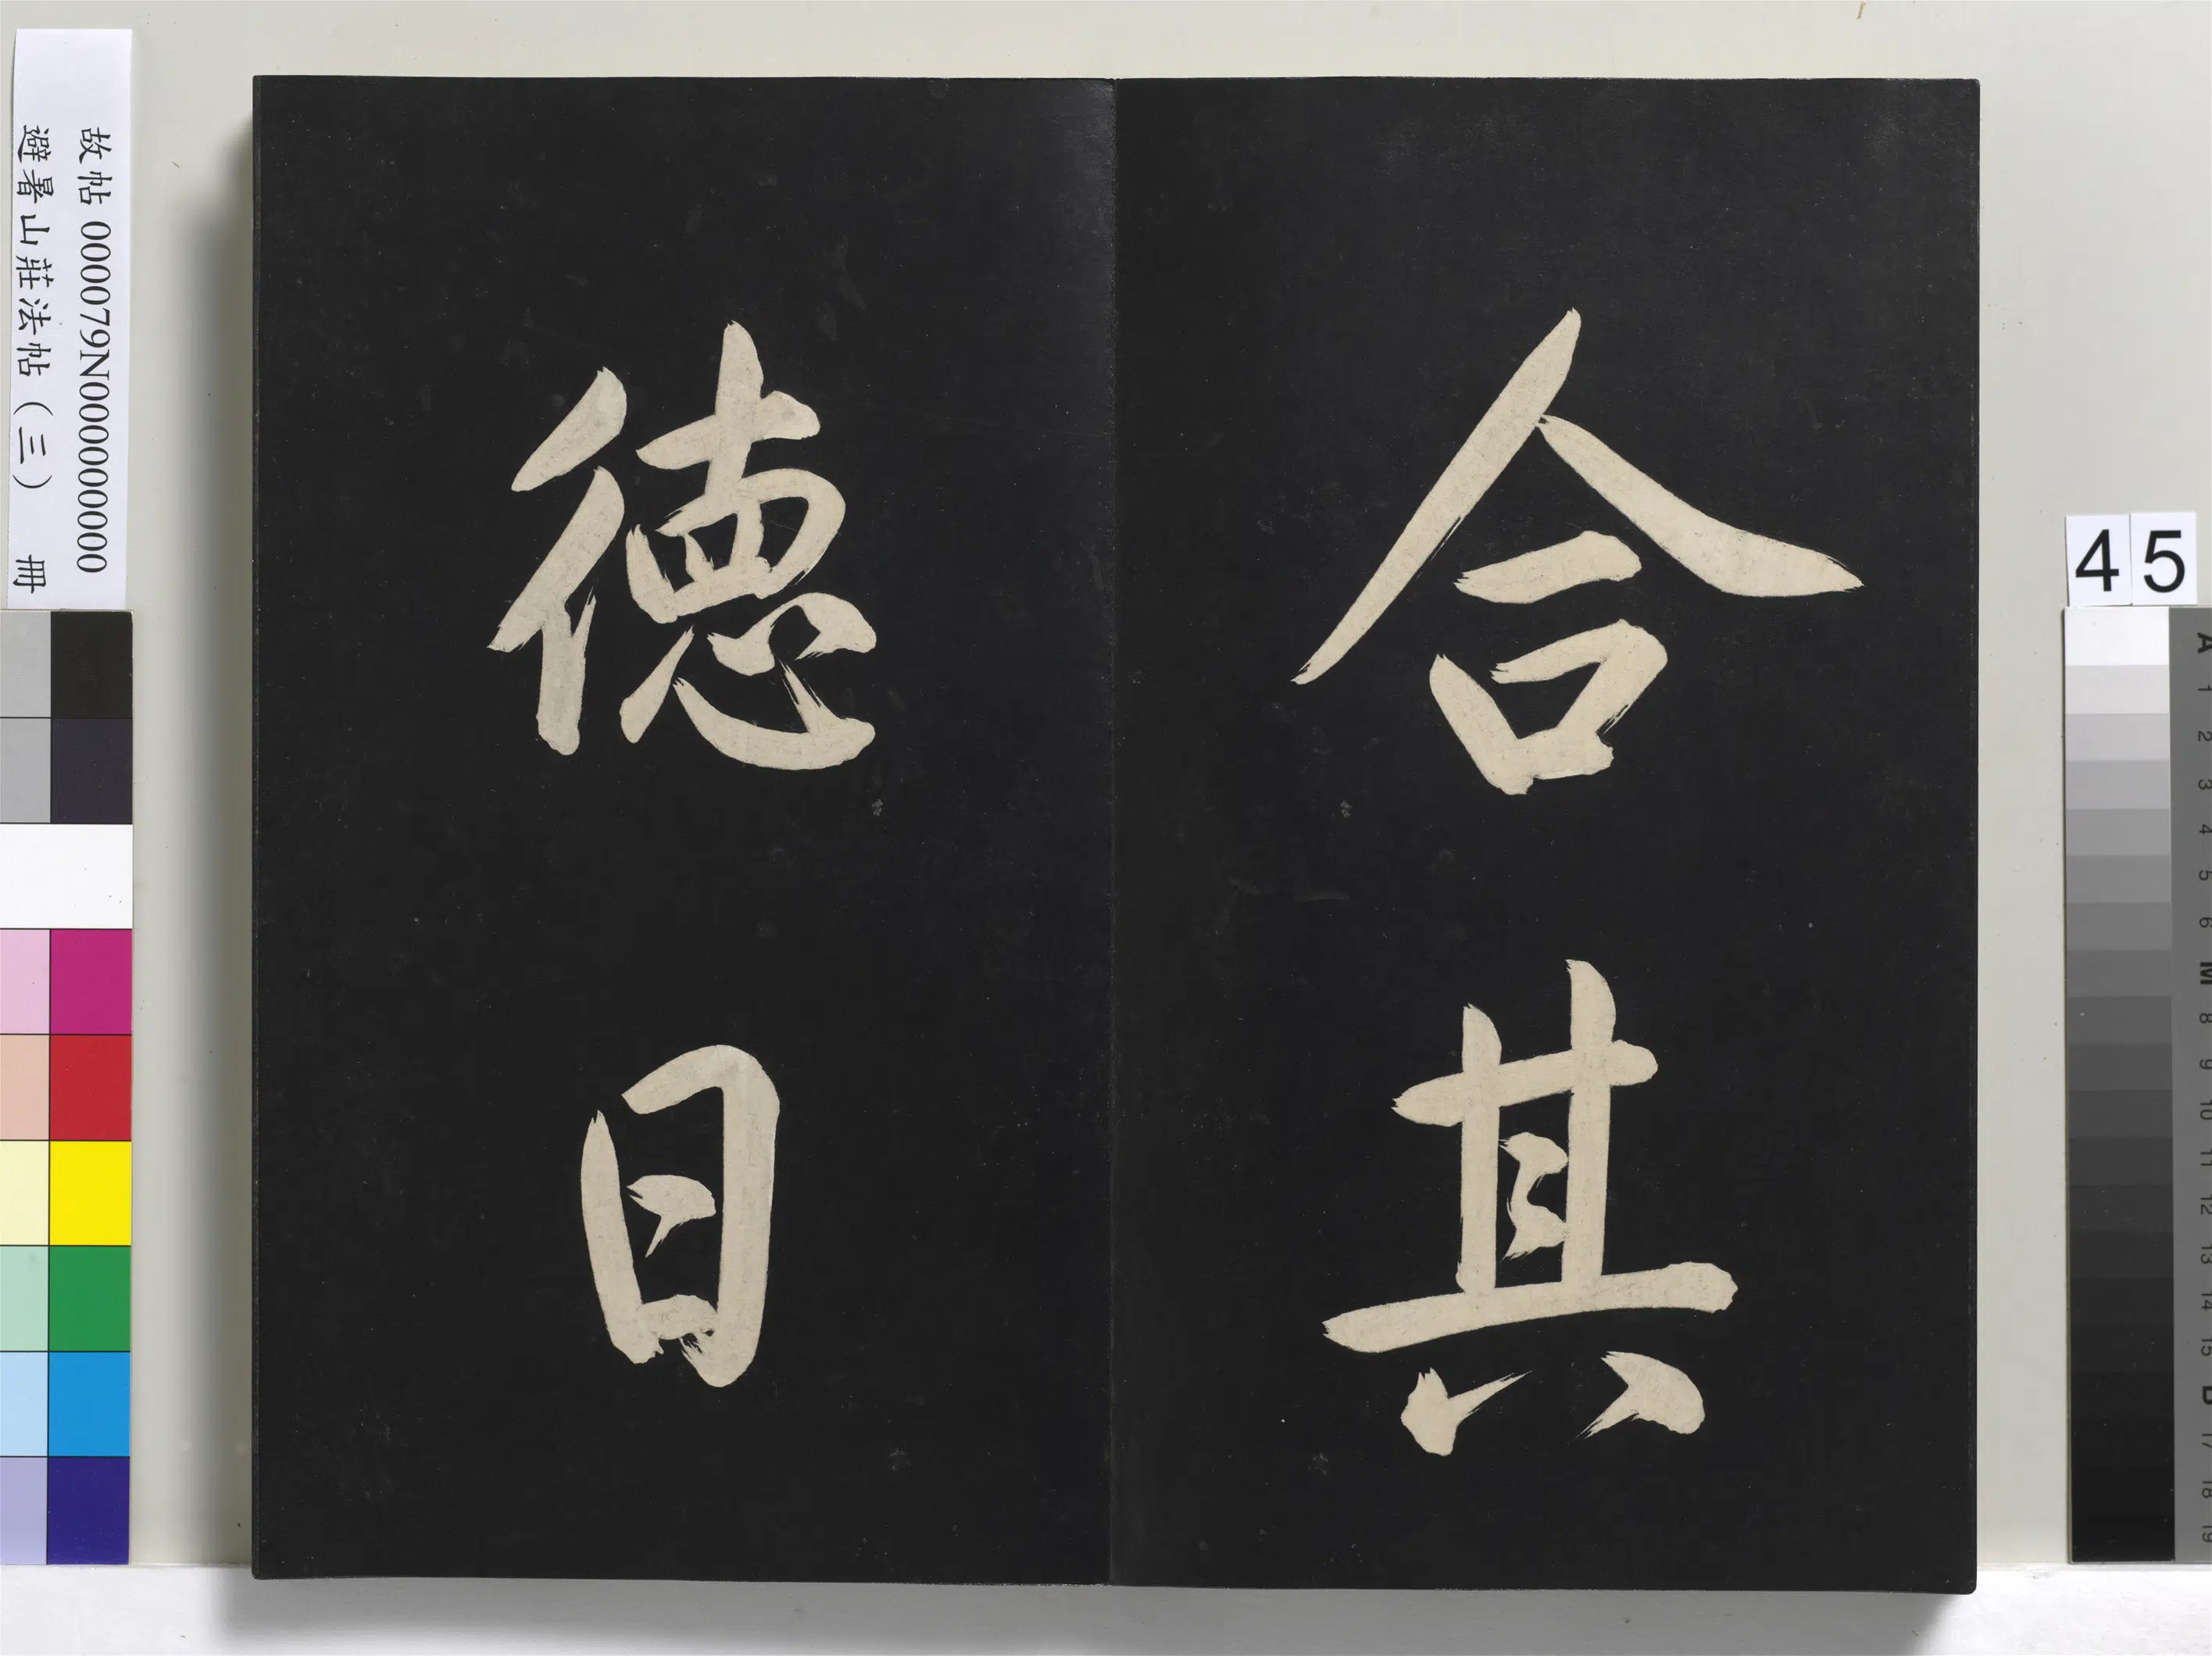 合其
德日
故帖000079N000000000
避暑山莊法帖（三） 冊
45
A
1
2
3
4
5
6
M
8
9
10
11
12
13
14
15
B
17
18
19